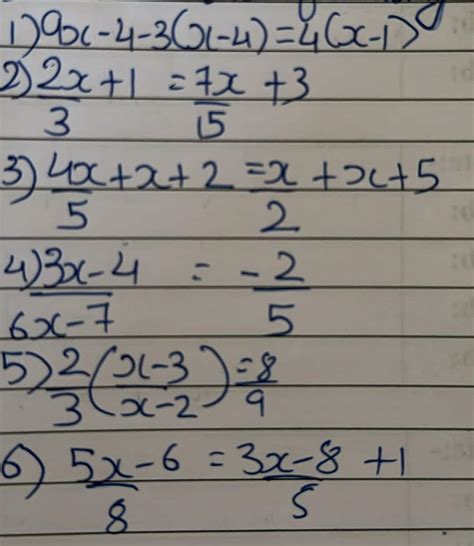 1) 9x-4-3(x-4)=4(x-1)
2) 2x/3 + 1 = 7x/15 + 3
3) 4x/5 + x + 2 = x/2 + x + 5
4) 3x-4/6x-7 = -2/5
5) 2/3 (x-3/x-2) = 8/9
6) 5x-6/8 = 3x-8/5 + 1